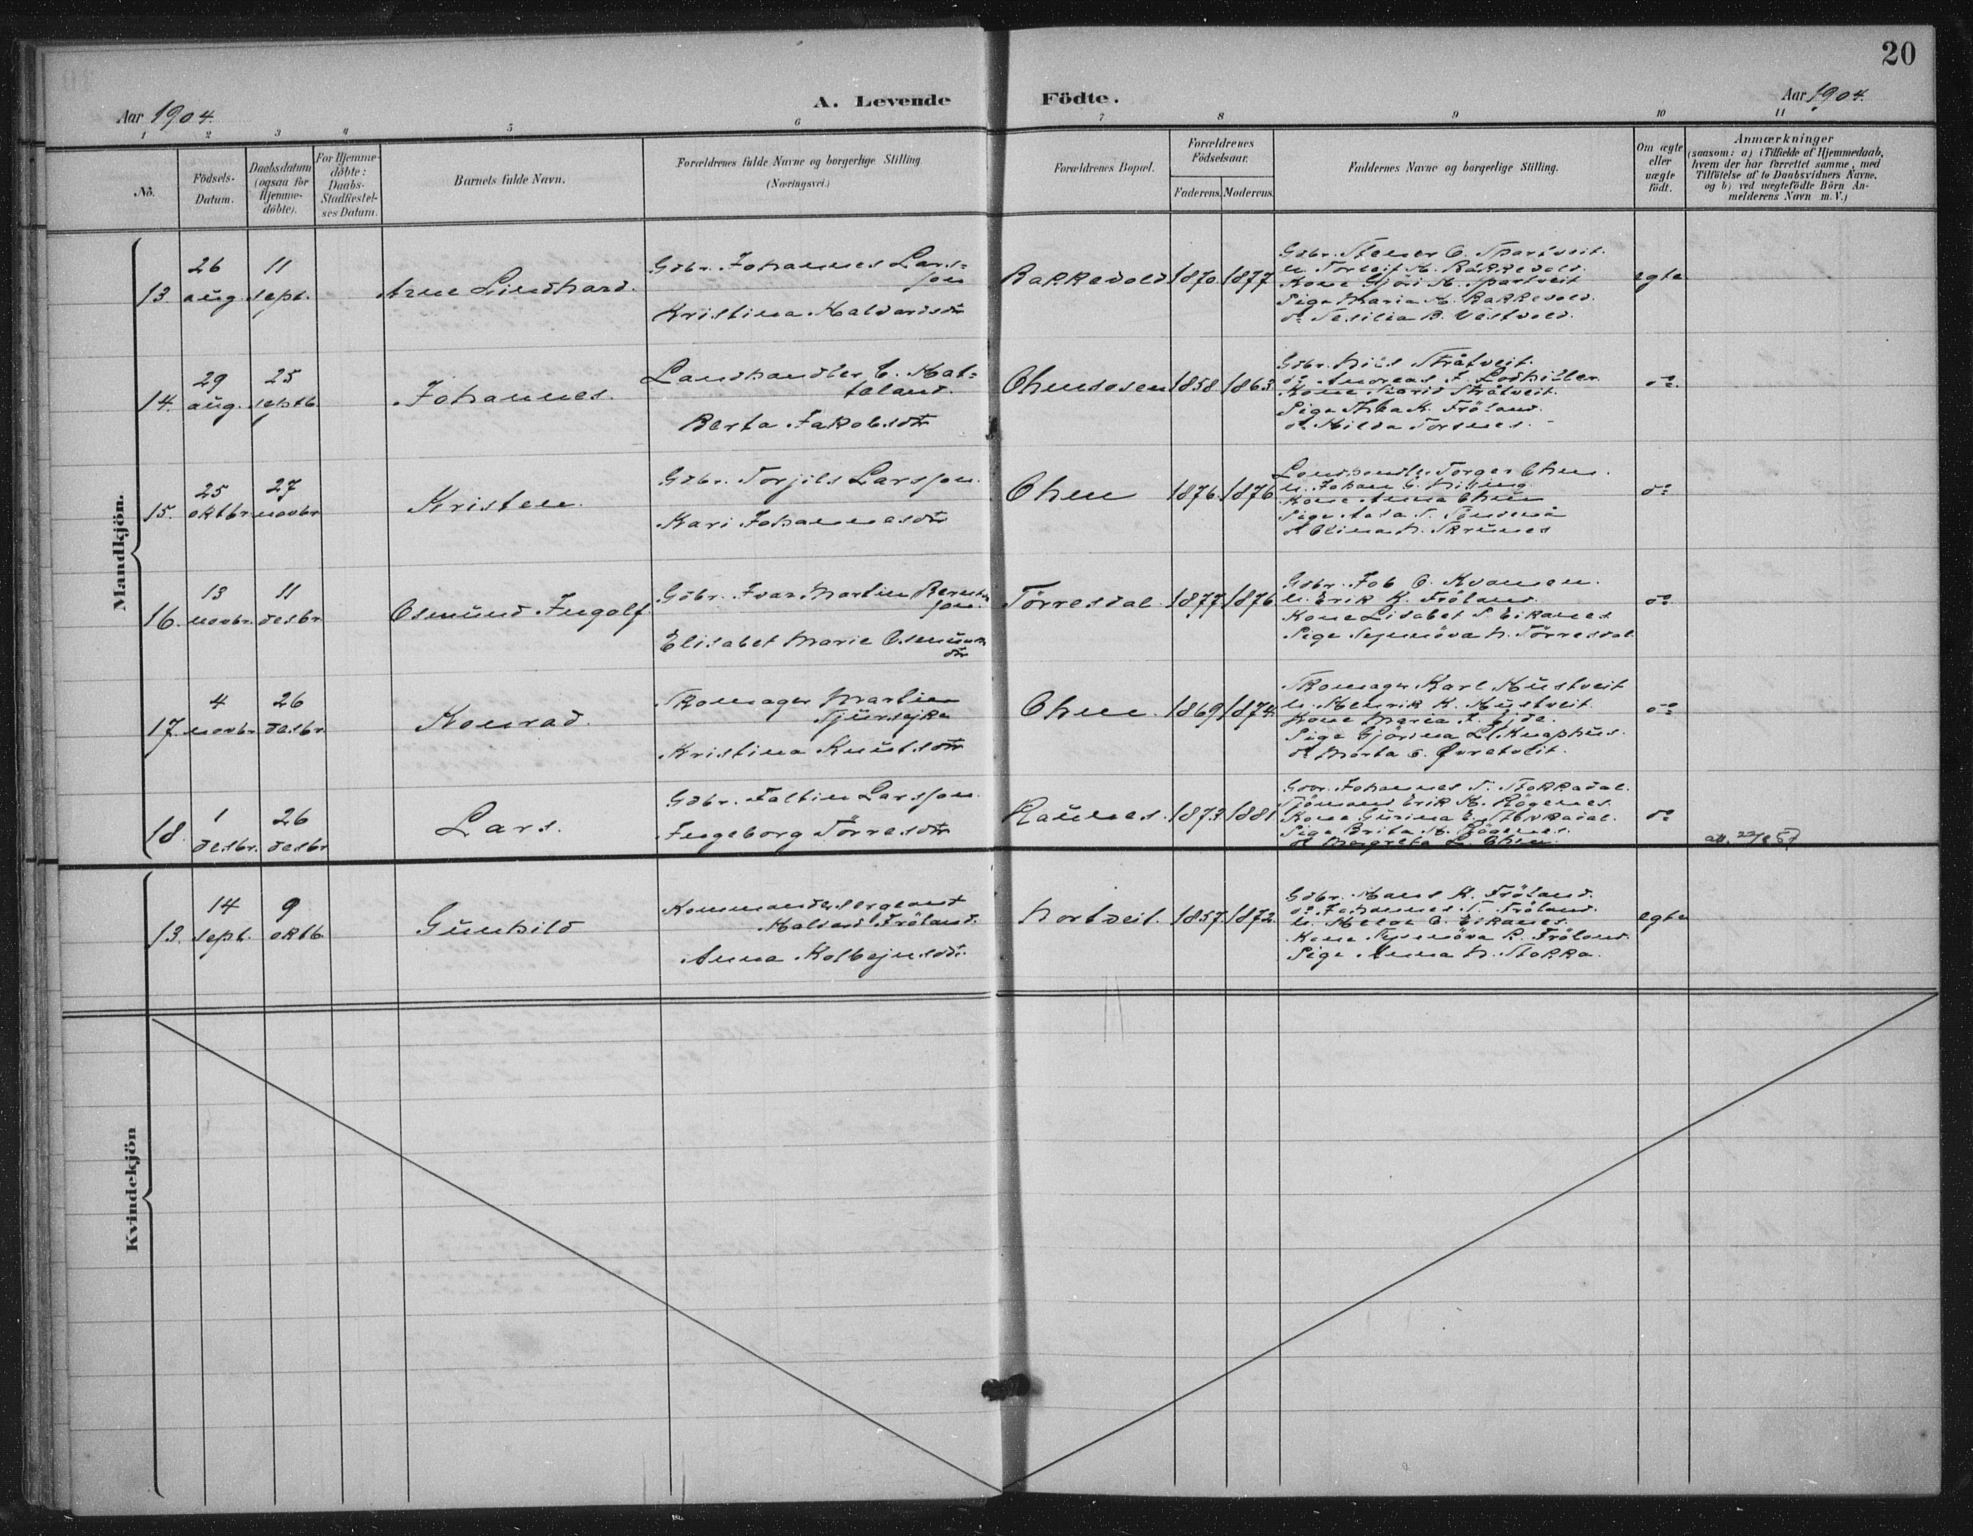 20
Aar 1904.
A. Levende Födte.
Aar 1904.
1 2 3 4 5 6 7 8 9 10 11
No.
Födsels-Datum.
Daabsdatum (ogsaa for Hjemme-döbte).
For Hjemme-döbte: Daabs-Stadfæstel-ses Datum.
Barnets fulde Navn.
Forældrenes fulde Navne og borgerlige Stilling.
(Næringsvei.)
Forældrenes Bopæl.
Forældrenes Födselsaar.
Faderens. Moderens.
Faddernes Navne og borgerlige Stilling.
Om ægte eller uægte födt.
Anmærkninger
(saasom: a) i Tilfælde af Hjemmedaab,
hvem der har forrettet samme, med
Tilföielse af to Daabsvidners Navne,
og b) ved uægtefödte Börn An-
melderens Navn m. V.)
Mandkjön.
13. 26 aug. 11 sept.
Arne Lindhard.
Gdbr. Johannes Lars=
son
Kristina Halvardsdtr
Bakkevold 1870. 1877.
Gdbr. Stener O. Spartveit.
u. Torleif H. Bakkevold.
Kone Gjöri H. Spartveit
Pige Maria H. Bakkevold.
do Sesilia B. Vestvold.
egte
14. 29 aug. 25 septb.
Johannes.
Landhandler E. Hat=
teland.
Berta Jakobsdtr
Ølensosen 1858. 1863.
Gdbr. Nils Tråtveit.
do Andreas J. Lodhiller.
Pige Thea K. Fröland.
do Hilda Torsnes.
do
15. 25 oktbr. 27 novbr
Kristen.
Gdbr. Torjils Larsson.
Kari Johannesdtr
Ølen 1876. 1876.
Landhandler Torger Ølen.
Kone Anna Ølen
do
16. 13 novbr. 11 desbr.
Osmund Ingolf.
Gdbr. Ivar Martin Bernts
son.
Elisabet Marie Osmunds
dtr
Törresdal. 1877. 1876.
Gdbr. Job O. Kvamen.
u. Erik K. Fröland.
Kone Lisabet S. Eikanes
Pige Synnöva N. Törresdal
do
17. 4 novbr. 26 desbr
Konrad.
Skomager Martin
Kristina Knutsdtr
Ølen. 1869. 1874.
Skomager Karl Hustveit
u. Henrik K. Hustveit.
Kone Maria J. Eide.
Pige Gjörina L. Knaphus.
do Marta E. Øvretveit.
do
18. 1 desbr. 26 desbr
Lars.
Gdbr. Faltin Larsson.
Ingeborg Törresdtr
Raunes. 1873. 1881.
Gdbr. Johannes S. Stokkadal.
Sjömand Erik H. Rögenes.
Pige Brita H. Rögenes.
do Margreta L. Ølen.
do
Kvindekjön
13. 14 sept. 9 oktb.
Gunhild
Kommandersergeant
Halvard Fröland.
Anna Kolbejnsdtr.
Nortveit. 1857. 1872.
Gdbr. Hans K. Fröland.
do Johannes T. Fröland.
u. Helge O. Eikanes.
Kone Synnöva R. Fröland.
Pige Anna N. Stokka.
egte